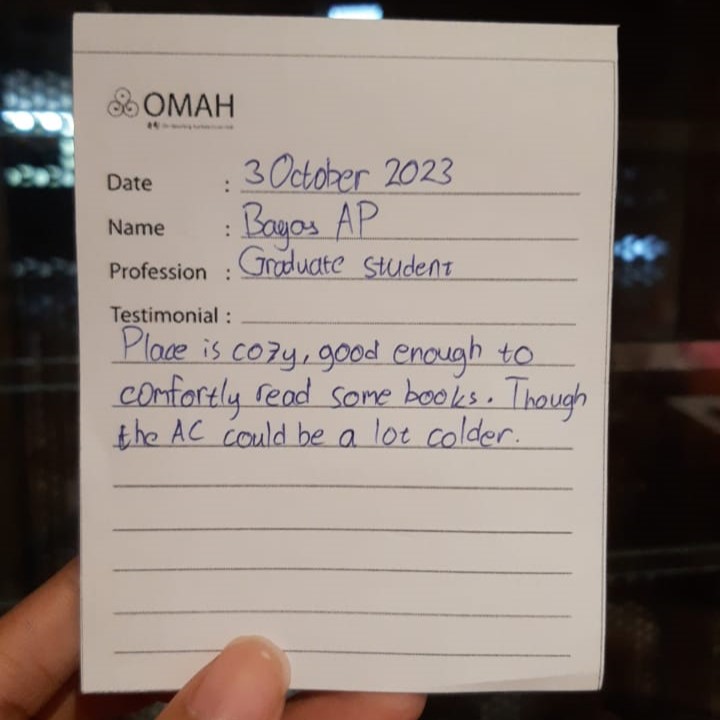 OMAH
Date : 3 October 2023
Name : Bagas AP
Profession : Graduate student
Testimonial :
Place is cozy, good enough to
comfortly read some books. Though
the AC could be a lot colder.